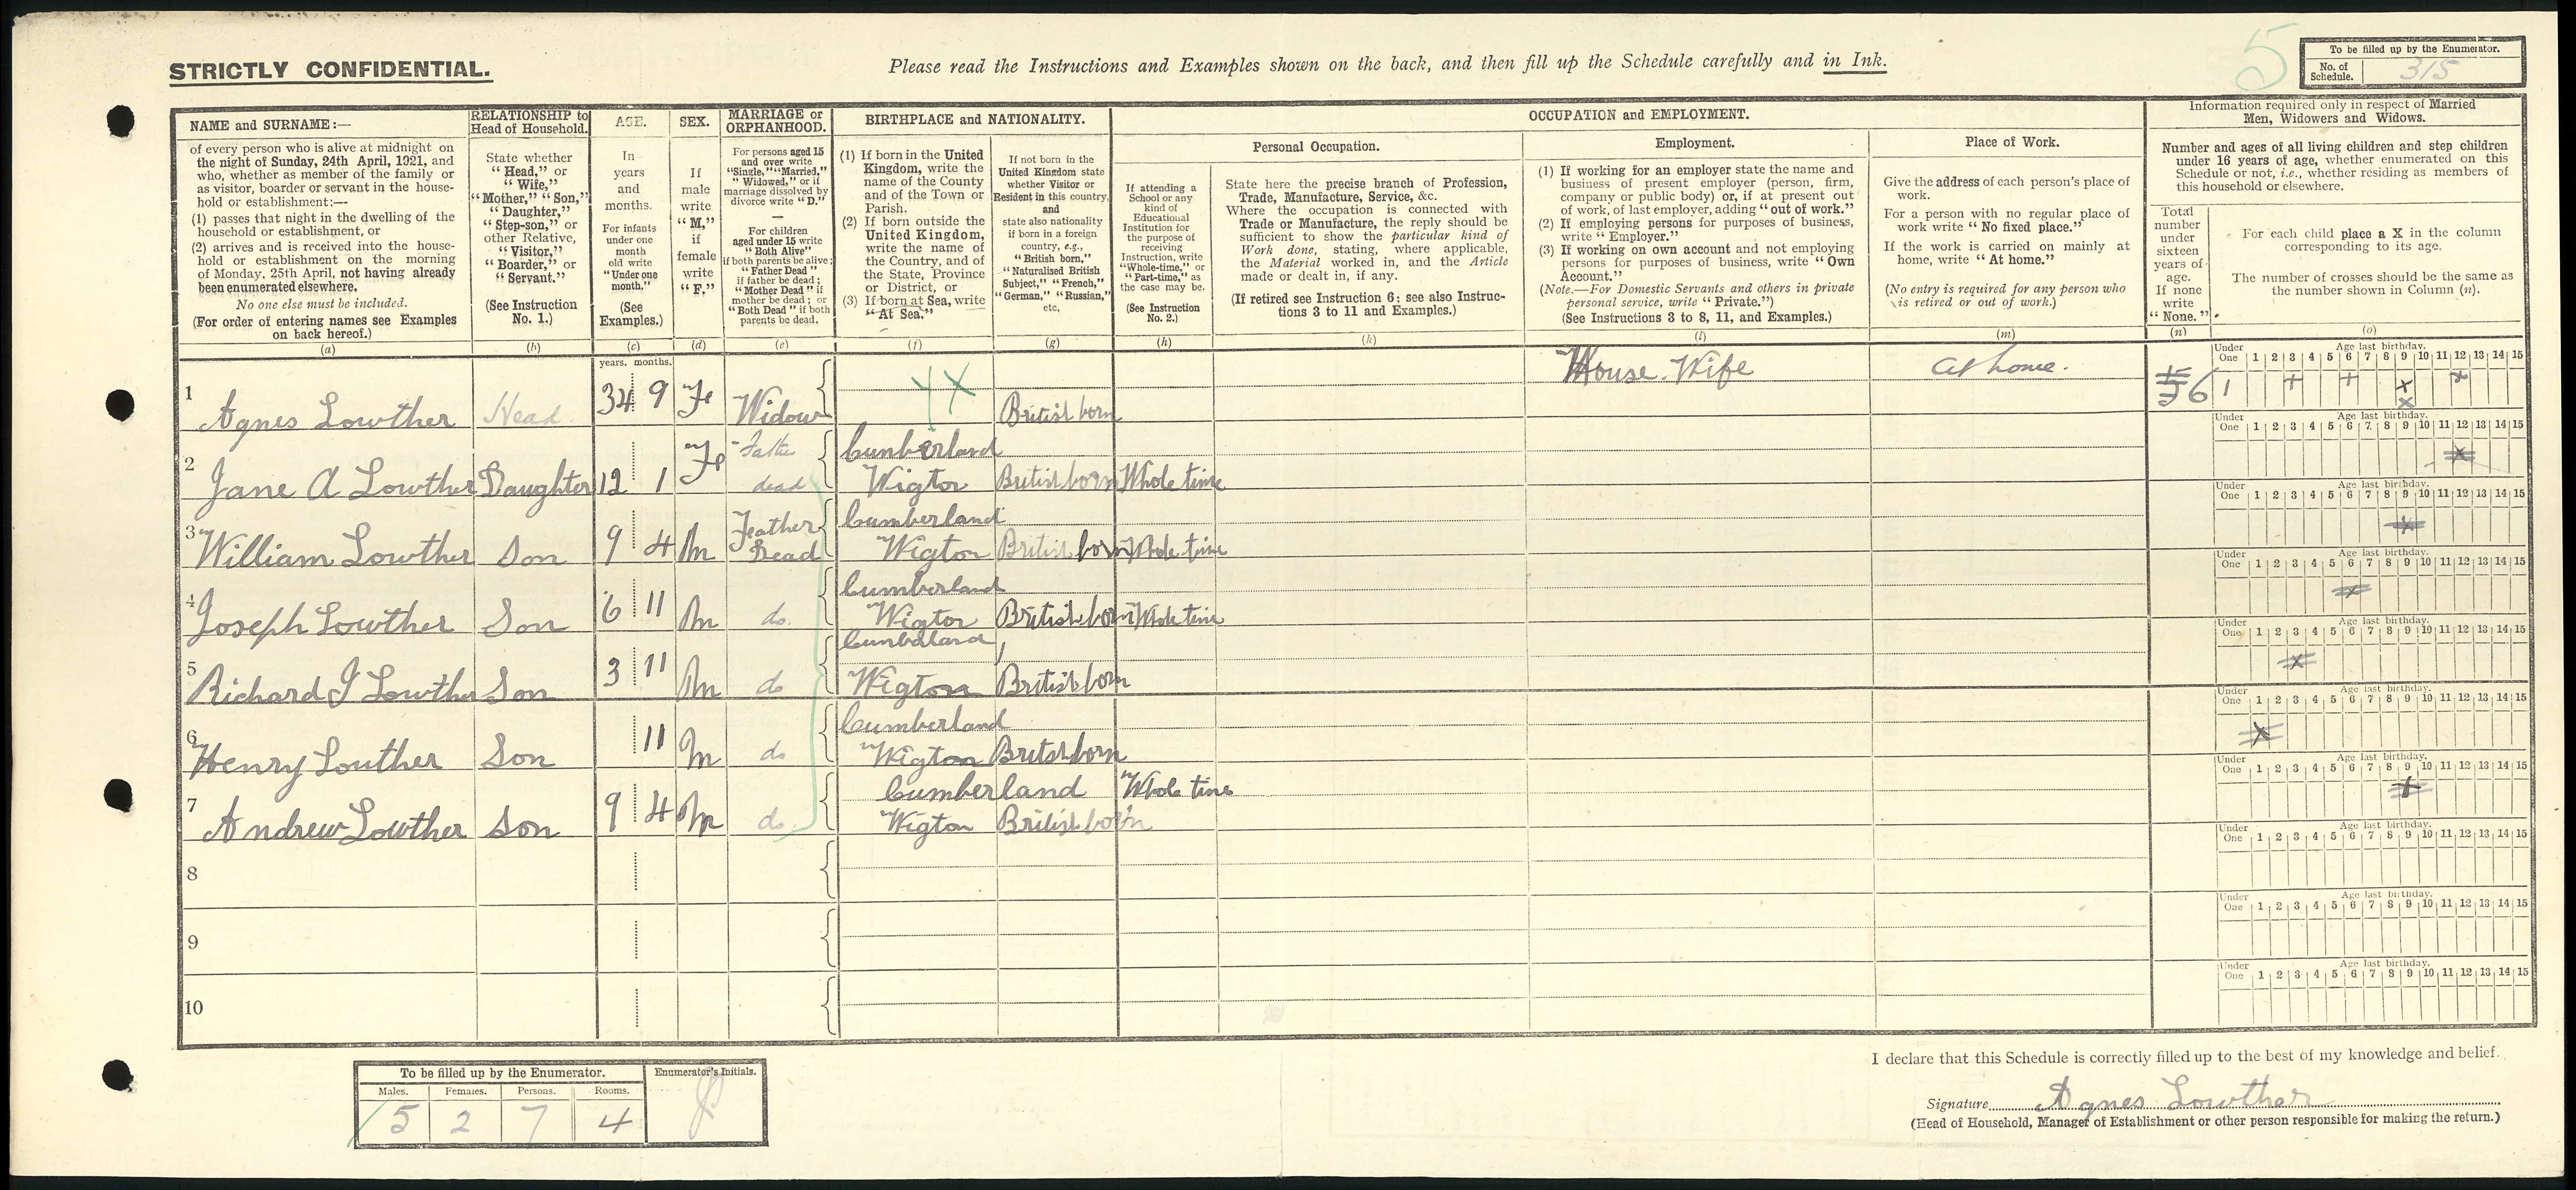 STRICTLY CONFIDENTIAL.
Please read the Instructions and Examples shown on the back, and then fill up the Schedule carefully and in Ink.
5
To be filled up by the Enumerator.
No. of Schedule. 315
NAME and SURNAME:—
of every person who is alive at midnight on
the night of Sunday, 24th April, 1921, and
who, whether as member of the family or
as visitor, boarder or servant in the house-
hold or establishment:—
(1) passes that night in the dwelling of the
household or establishment, or
(2) arrives and is received into the house-
hold or establishment on the morning
of Monday, 25th April, not having already
been enumerated elsewhere.
No one else must be included.
(For order of entering names see Examples
on back hereof.)
(a)
RELATIONSHIP to
Head of Household.
State whether
"Head," or
"Wife,"
"Mother," "Son,"
"Daughter,"
"Step-son," or
other Relative,
"Visitor,"
"Boarder," or
"Servant."
(See Instruction
No. 1.)
(b)
AGE.
In
years
and
months.
For infants
under one
month
old write
"Under one
month."
(See
Examples.)
(c)
SEX.
If
male
write
"M,"
if
female
write
"F."
(d)
MARRIAGE or
ORPHANHOOD.
For persons aged 15
and over write
"Single," "Married,"
"Widowed," or if
marriage dissolved by
divorce write "D."
—
For children
aged under 15 write
"Both Alive"
if both parents be alive;
"Father Dead"
if father be dead;
"Mother Dead" if
mother be dead; or
"Both Dead" if both
parents be dead.
(e)
BIRTHPLACE and NATIONALITY.
(1) If born in the United
Kingdom, write the
name of the County
and of the Town or
Parish.
(2) If born outside the
United Kingdom,
write the name of
the Country, and of
the State, Province
or District, or
(3) If born at Sea, write
"At Sea."
(f)
If not born in the
United Kingdom state
whether Visitor or
Resident in this country,
and
state also nationality
if born in a foreign
country, e.g.,
"British born,"
"Naturalised British
Subject," "French,"
"German," "Russian,"
etc,
(g)
OCCUPATION and EMPLOYMENT.
Personal Occupation.
If attending a
School or any
kind of
Educational
Institution for
the purpose of
receiving
Instruction, write
"Whole-time," or
"Part-time," as
the case may be.
(See Instruction
No. 2.)
(h)
State here the precise branch of Profession,
Trade, Manufacture, Service, &c.
Where the occupation is connected with
Trade or Manufacture, the reply should be
sufficient to show the particular kind of
Work done, stating, where applicable,
the Material worked in, and the Article
made or dealt in, if any.
(If retired see Instruction 6; see also Instruc-
tions 3 to 11 and Examples.)
(k)
Employment.
(1) If working for an employer state the name and
business of present employer (person, firm,
company or public body) or, if at present out
of work, of last employer, adding "out of work."
(2) If employing persons for purposes of business,
write "Employer."
(3) If working on own account and not employing
persons for purposes of business, write "Own
Account."
(Note.—For Domestic Servants and others in private
personal service, write "Private.")
(See Instructions 3 to 8, 11, and Examples.)
(l)
Place of Work.
Give the address of each person's place of
work.
For a person with no regular place of
work write "No fixed place."
If the work is carried on mainly at
home, write "At home."
(No entry is required for any person who
is retired or out of work.)
(m)
Information required only in respect of Married
Men, Widowers and Widows.
Number and ages of all living children and step children
under 16 years of age, whether enumerated on this
Schedule or not, i.e., whether residing as members of
this household or elsewhere.
Total
number
under
sixteen
years of
age.
If none
write
"None."
(n)
For each child place a X in the column
corresponding to its age.
The number of crosses should be the same as
the number shown in Column (n).
(o)
years. months.
Under One Age last birthday. 1 2 3 4 5 6 7 8 9 10 11 12 13 14 15
1 Agnes Lowther Head 34 9 Fe Widow 4X British born House.Wife at home. 6 1 + + x x +
Under One Age last birthday. 1 2 3 4 5 6 7 8 9 10 11 12 13 14 15
2 Jane A Lowther Daughter 12 1 Fe Father dead Cumberland Wigton British born Whole time x
Under One Age last birthday. 1 2 3 4 5 6 7 8 9 10 11 12 13 14 15
3 William Lowther Son 9 4 M Feather Dead Cumberland Wigton British born Whole time x
Under One Age last birthday. 1 2 3 4 5 6 7 8 9 10 11 12 13 14 15
4 Joseph Lowther Son 6 11 M do. Cumberland Wigton British born Whole time x
Under One Age last birthday. 1 2 3 4 5 6 7 8 9 10 11 12 13 14 15
5 Richard J Lowther Son 3 11 M do Cumberland Wigton British born x
Under One Age last birthday. 1 2 3 4 5 6 7 8 9 10 11 12 13 14 15
6 Henry Louther Son 11 M do Cumberland Wigton British born x
Under One Age last birthday. 1 2 3 4 5 6 7 8 9 10 11 12 13 14 15
7 Andrew Lowther Son 9 4 M do. Cumberland Wigton British born Whole time +
Under One Age last birthday. 1 2 3 4 5 6 7 8 9 10 11 12 13 14 15
8
Under One Age last birthday. 1 2 3 4 5 6 7 8 9 10 11 12 13 14 15
9
Under One Age last birthday. 1 2 3 4 5 6 7 8 9 10 11 12 13 14 15
10
To be filled up by the Enumerator.
Enumerator's Initials.
Males. Females. Persons. Rooms.
5 2 7 4
I declare that this Schedule is correctly filled up to the best of my knowledge and belief.
Signature Agnes Lowther
(Head of Household, Manager of Establishment or other person responsible for making the return.)